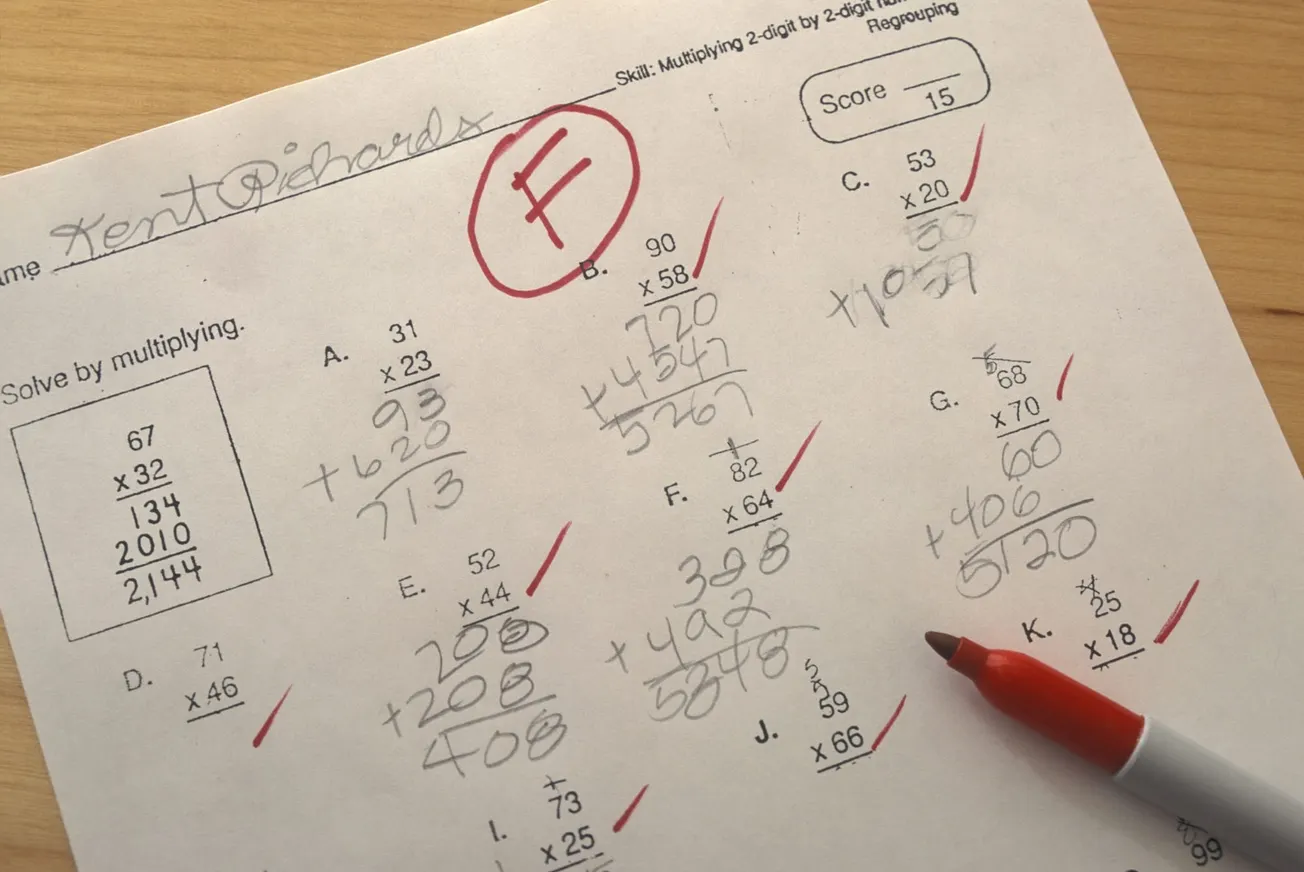 Skill: Multiplying 2-digit by 2-digit
Regrouping
Score
15
Kent Richards
F
Solve by multiplying.
67
x 32
134
2010
2,144
A. 31
x 23
93
+620
713
B. 90
x 58
720
+4547
5267
C. 53
x 20
50
D. 71
x 46
E. 52
x 44
208
+208
408
F. 82
x 64
328
+492
5348
G. 5
68
x 70
60
+406
5120
I. 73
x 25
J. 5
59
x 66
K. 4
25
x 18
99